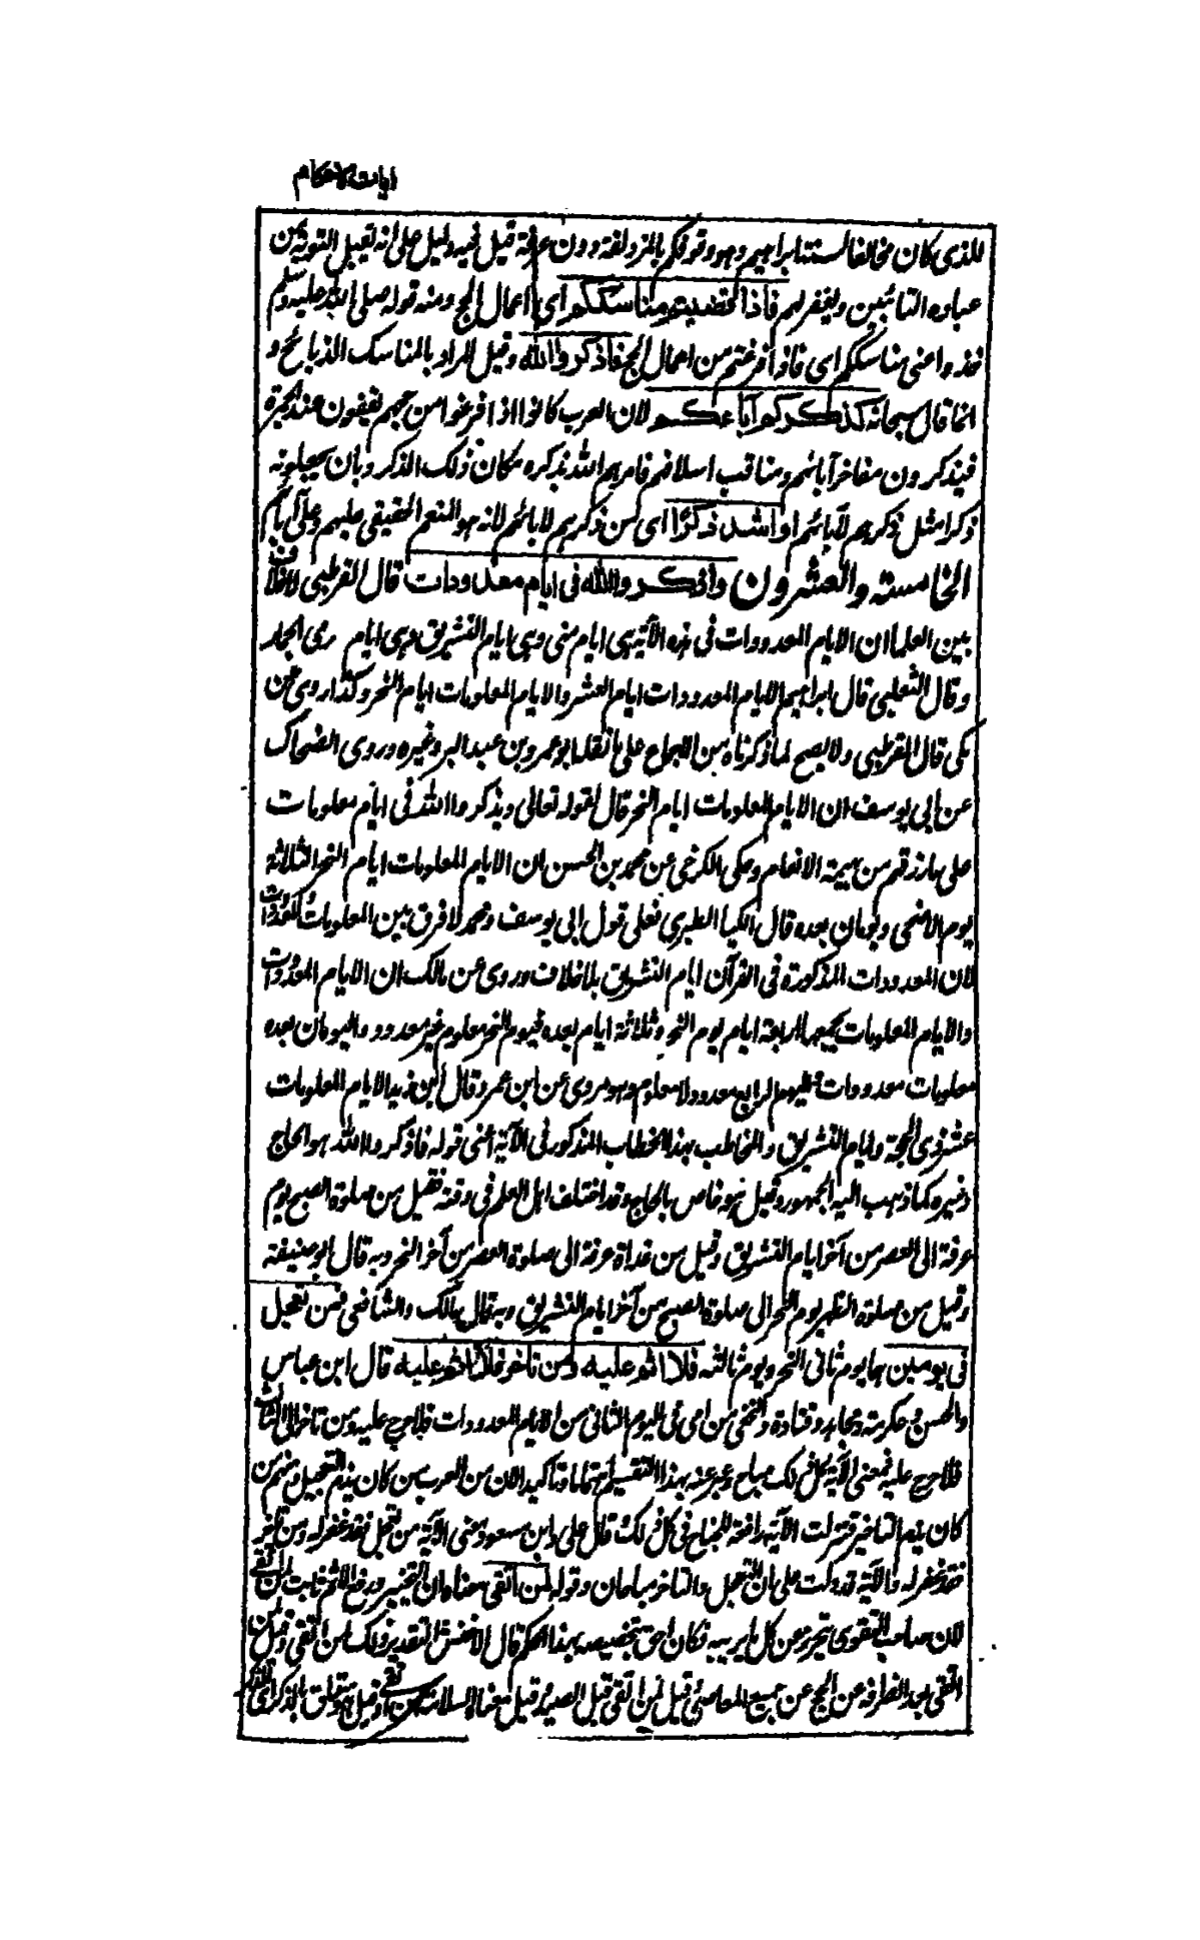 آيات الاحكام
للذى كان مخالفا لسنة ابراهيم وهو وقوفكم بالمزدلفة دون عرفة قيل فيه دليل على انه تعالى يقبل التوبة من
عباده التائبين ويغفر لهم فاذا قضيتم مناسككم اى اعمال الحج ومنه قوله صلى الله عليه وسلم
خذوا عنى مناسككم اى فاذا فرغتم من اعمال الحج فاذكروا الله وقيل المراد بالمناسك الذبائح و
انما قال سبحانه كذكركم آباءكم لان العرب كانوا اذا فرغوا من حجهم يقفون عند الجمرة
فيذكرون مفاخر آبائهم ومناقب اسلافهم فامرهم الله بذكره مكان ذلك الذكر وبان يجعلونه
ذكرا مثل ذكرهم لآبائهم او اشد ذكرًا اى من ذكرهم لابائهم لانه هو المنعم الحقيقى عليهم وعلى آبائهم
الخامسة والعشرون واذكروا الله فى ايام معدودات قال القرطبى لا خلاف
بين العلماء ان الايام المعدودات فى هذه الآية هى ايام منى وهى ايام التشريق وهى ايام رمى الجمار
وقال الثعلبى قال ابراهيم الايام المعدودات ايام العشر والايام المعلومات ايام النحر وكذا روى عن
مكى قال القرطبى ولا يصح لما ذكرناه من الاجماع على ما نقله ابو عمرو بن عبد البر وغيره وروى الضحاك
عن ابى يوسف ان الايام المعلومات ايام النحر قال لقوله تعالى ويذكروا الله فى ايام معلومات
على ما رزقهم من بهيمة الانعام وحكى الكرخى عن محمد بن الحسن ان الايام المعلومات ايام النحر الثلاثة
يوم الاضحى ويومان بعده قال الكيا الطبرى فعلى قول ابى يوسف ومحمد لا فرق بين المعلومات والمعدودات
لان المعدودات المذكورة فى القرآن ايام التشريق بلا خلاف وروى عن مالك ان الايام المعدودات
والايام المعلومات يجمعها اربعة ايام يوم النحر وثلاثة ايام بعده فيوم النحر معلوم غير معدود واليومان بعده
معلومات معدودات واليوم الرابع معدود لا معلوم وهو مروى عن ابن عمر وقال ابن زيد الايام المعلومات
عشر ذى الحجة وايام التشريق والمخاطب بهذا الخطاب المذكور فى الآية اعنى قوله فاذكروا الله هو الحاج
وغيره كما ذهب اليه الجمهور وقيل هو خاص بالحاج وقد اختلف اهل العلم فى وقته فقيل من صلوة الصبح يوم
عرفة الى العصر من آخر ايام التشريق وقيل من غداة عرفة الى صلوة العصر من آخر النحر وبه قال ابو حنيفة
وقيل من صلوة الظهر يوم النحر الى صلوة الصبح من آخر ايام التشريق وبه قال مالك والشافعى فمن تعجل
فى يومين هما يوم ثانى النحر ويوم ثالثه فلا اثم عليه ومن تاخر فلا اثم عليه قال ابن عباس
والحسن وعكرمة ومجاهد وقتادة والنخعى من رمى فى اليوم الثانى من الايام المعدودات فلا حرج عليه ومن تاخر الى الثالث
فلا حرج عليه فمعنى الآية كل ذلك مباح وعبر عنه بهذا التقسيم اهتماما وتاكيدا لان من العرب من كان يذم التعجيل ومنهم من
كان يذم التاخير فنزلت الآية رافعة للجناح فى كل ذلك وقال على وابن مسعود معنى الآية من تعجل فقد غفر له ومن تاخر
فقد غفر له والآية قد دلت على ان التعجل والتاخر مباحان وقوله لمن اتقى معناه ان التخيير ورفع الاثم ثابت لمن اتقى
لان صاحب التقوى يتحرز عن كل ما يريبه فكان احق بتخصيصه بهذا الحكم قال الاخفش التقدير ذلك لمن اتقى وقيل لمن
اتقى بعد انصرافه عن الحج عن جميع المعاصى وقيل لمن اتقى قتل الصيد وقيل معناه السلامة لمن اتقى وقيل هو متعلق بالذكر اى الذكر